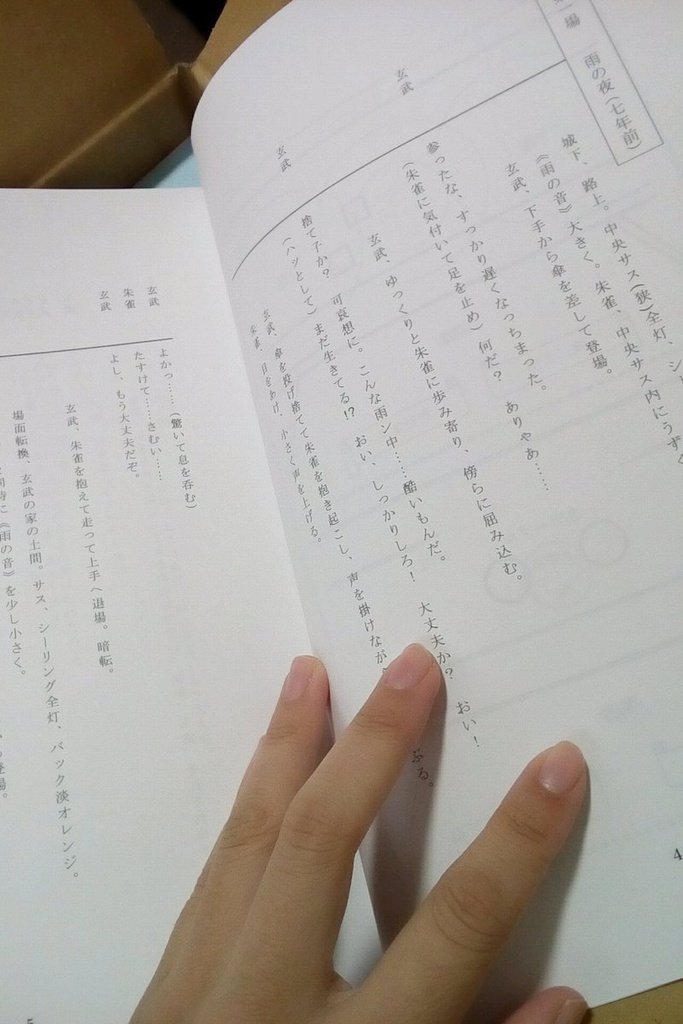 場 雨の夜(七年前)
城下、路上。中央サス(狭)全灯、シー
《雨の音》大きく。朱雀、中央サス内にうずく
玄武、下手から傘を差して登場。
玄武 参ったな、すっかり遅くなっちまった。
(朱雀に気付いて足を止め)何だ? ありゃあ……
玄武、ゆっくりと朱雀に歩み寄り、傍らに屈み込む。
玄武 捨て子か? 可哀想に。こんな雨ン中……酷いもんだ。
(ハッとして)まだ生きてる!? おい、しっかりしろ! 大丈夫か? おい!
玄武、傘を投げ捨てて朱雀を抱き起こし、声を掛けなが ぶる。
朱雀、目をあけ、小さく声を上げる。
4
玄武 よかっ……(驚いて息を呑む)
朱雀 たすけて……さむい……
玄武 よし、もう大丈夫だぞ。
玄武、朱雀を抱えて走って上手へ退場。暗転。
場面転換、玄武の家の土間。サス、シーリング全灯、バック淡オレンジ。
同時に《雨の音》を少し小さく。
登場。
5